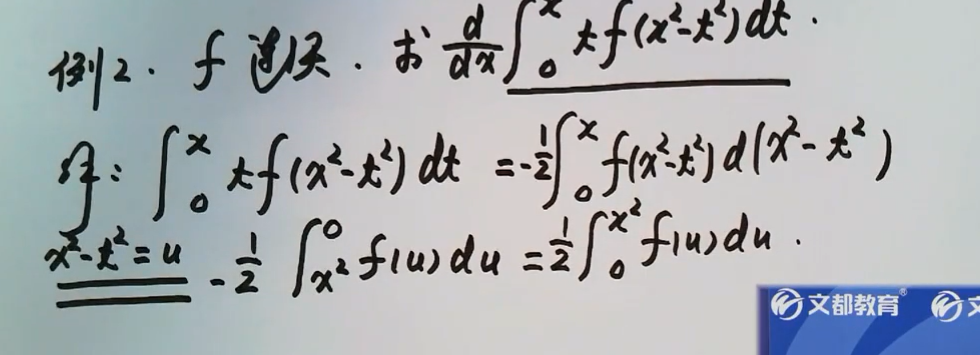 例2. f 连续. 求 d/dx ∫₀ˣ t f(x²-t²)dt.
解: ∫₀ˣ t f(x²-t²) dt = -1/2 ∫₀ˣ f(x²-t²) d(x²-t²)
x²-t²=u -1/2 ∫_{x²}^0 f(u) du = 1/2 ∫₀^{x²} f(u) du.
文都教育® 文